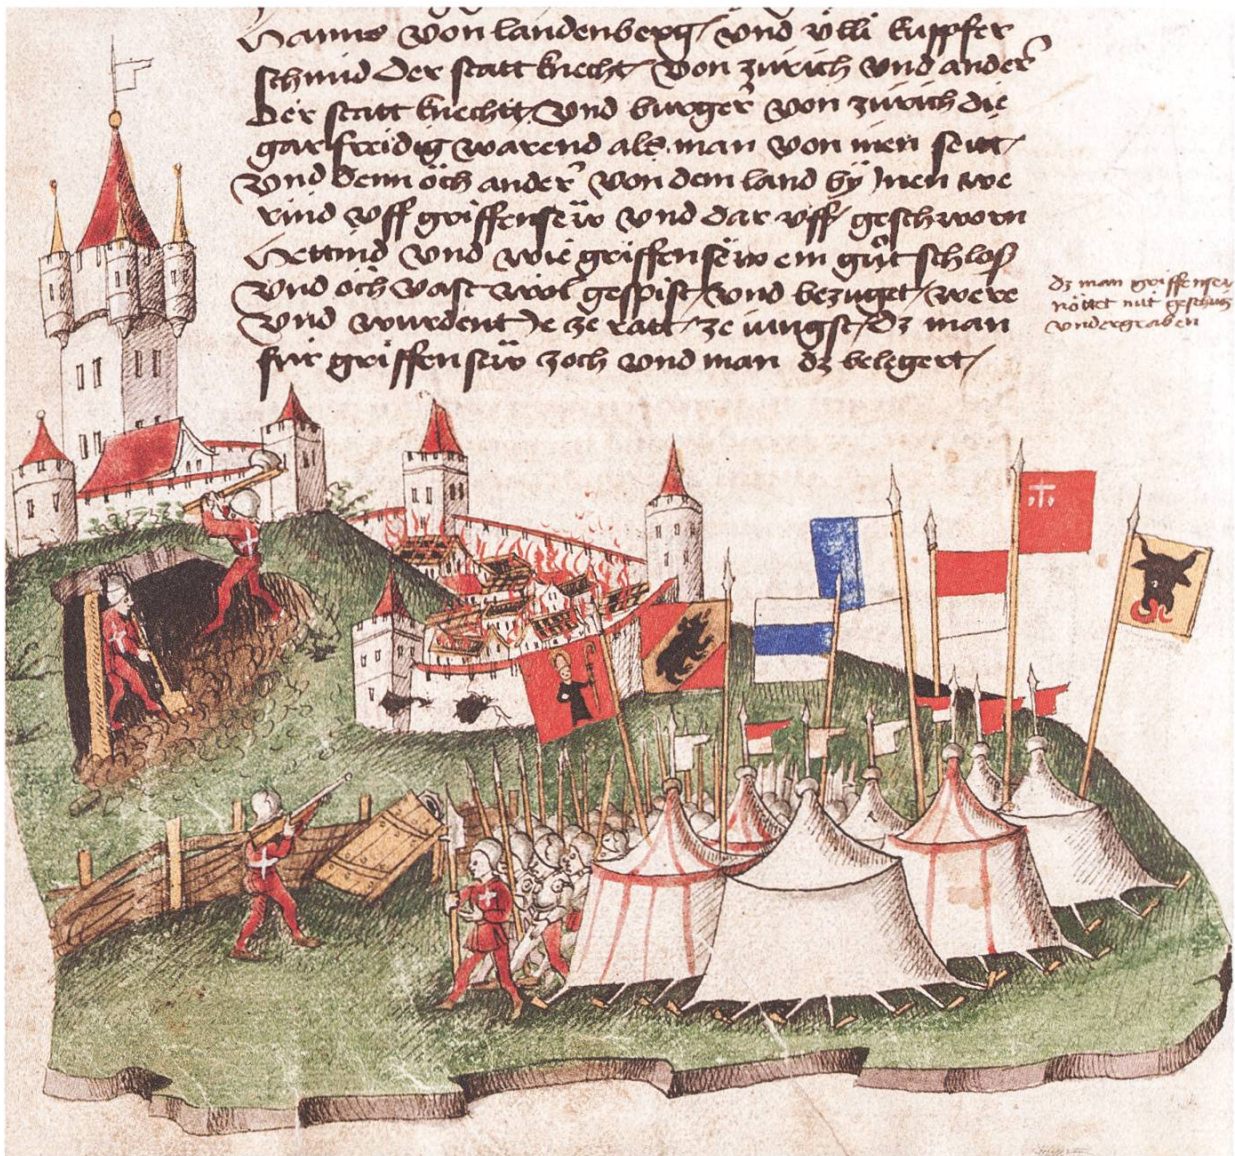 Hanns von landenberg / vnd vlli kuppfer
schmid der statt knecht / von zürich vnd ander
der statt knecht / vnd burger von zürich die
gar freidig warend als man von inen seitt /
vnd denn öch ander von dem land by Jnen we
rind vff griffensëw vnd dar vff geschworn
hettind vnd wie griffensëw ein güt schlos
vnd öch vast wol gespist / vnd bezüget / were
vnd wurdent Je ze ratt / ze iungst / dz man
für griffensëw zoch vnd man dz belegert /
dz man griffensew
nöttet mit geschütz
vndergraben